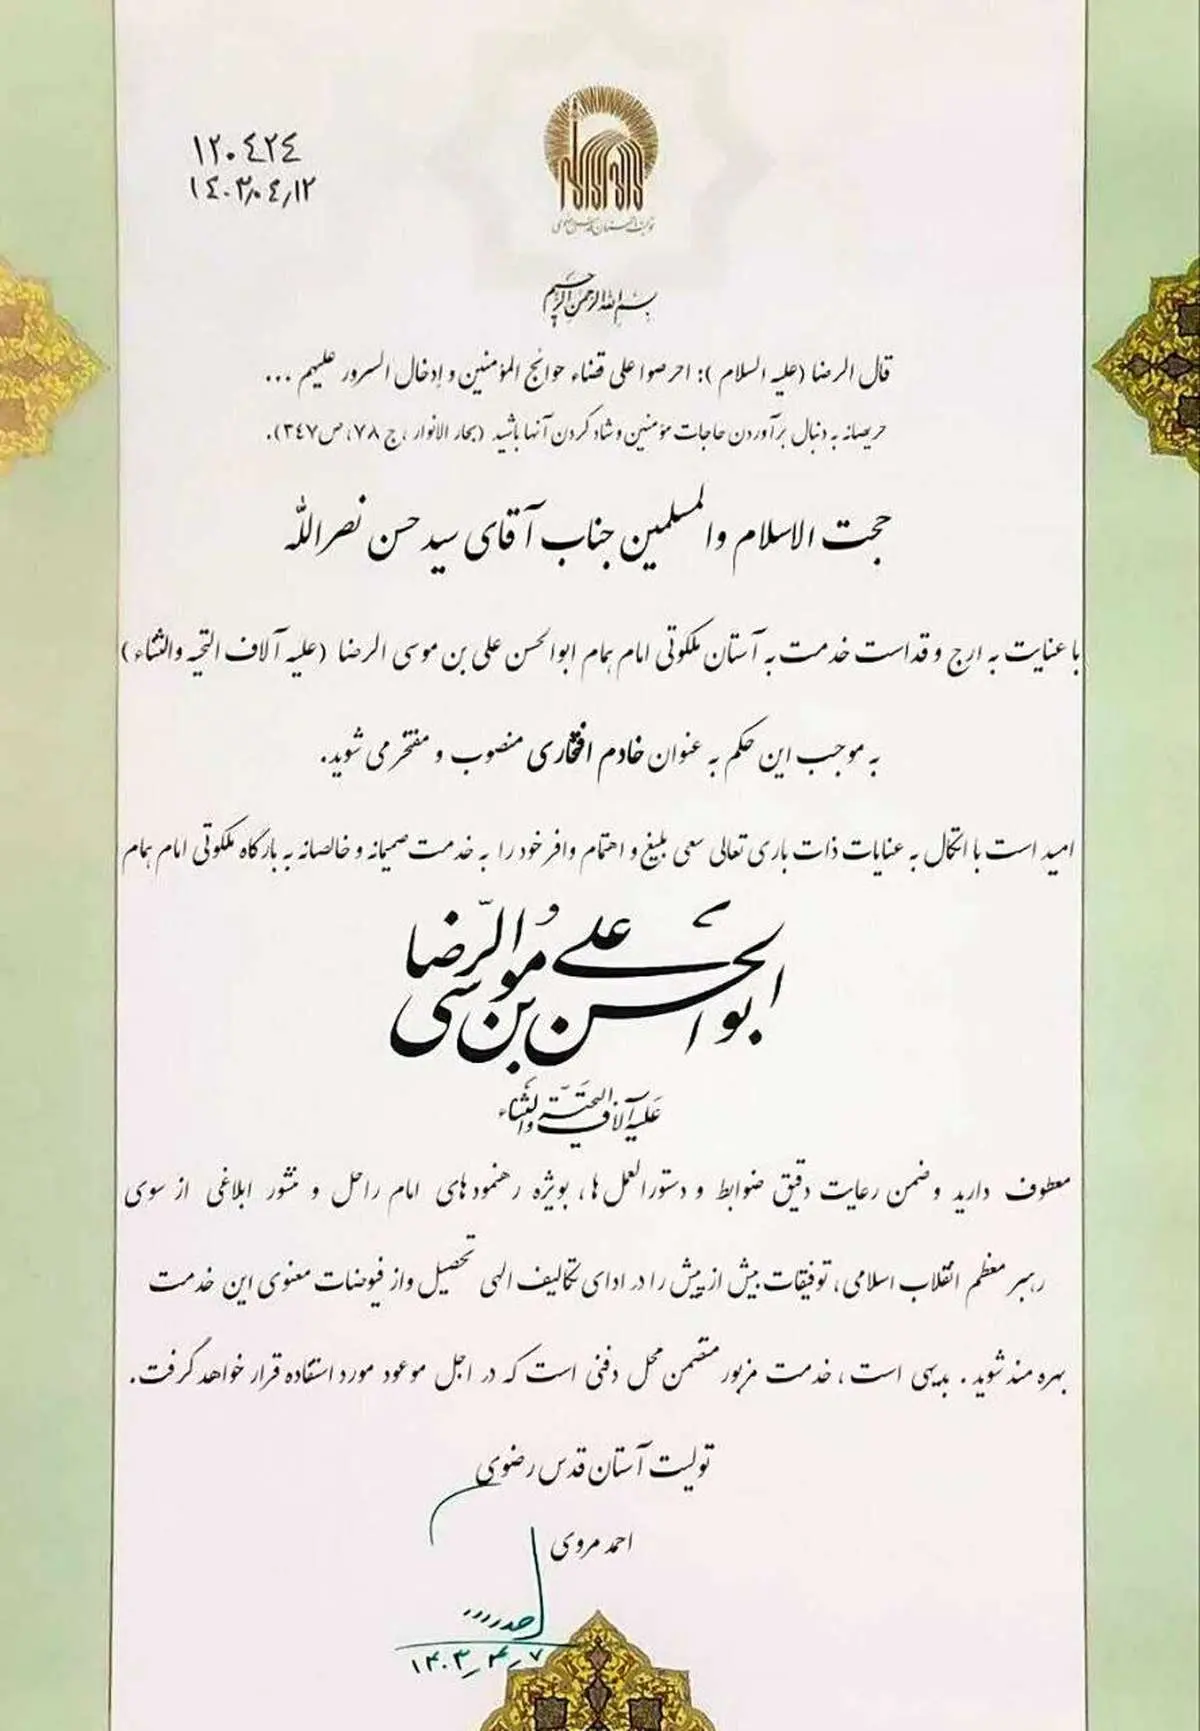 ۱۲۰٤۲٤
۱٤۰۳٫۰٤٫۱۲
تولیت آستان قدس رضوی
بسم الله الرحمن الرحیم
قال الرضا (علیه السلام): احرصوا علی قضاء حوائج المؤمنین و إدخال السرور علیهم ...
حریصانه به دنبال برآوردن حاجات مؤمنین و شاد کردن آنها باشید (بحار الانوار، ج ۷۸، ص۳٤۷).
حجت الاسلام والمسلمین جناب آقای سید حسن نصرالله
با عنایت به ارج و قداست خدمت به آستان ملکوتی امام همام ابوالحسن علی بن موسی الرضا (علیه آلاف التحیه والثناء)
به موجب این حکم به عنوان خادم افتخاری منصوب و مفتخر می شوید.
امید است با اتکال به عنایات ذات باری تعالی سعی بلیغ و اهتمام وافر خود را به خدمت صمیمانه و خالصانه به بارگاه ملکوتی امام همام
ابوالحسن علی بن موسی الرّضا
علیه آلاف التحیّة والثناء
معطوف دارید و ضمن رعایت دقیق ضوابط و دستورالعمل ها، بویژه رهنمودهای امام راحل و منشور ابلاغی از سوی
رهبر معظم انقلاب اسلامی، توفیقات بیش از پیش را در ادای تکالیف الهی تحصیل و از فیوضات معنوی این خدمت
بهره مند شوید. بدیهی است، خدمت مزبور متضمن محل دفنی است که در اجل موعود مورد استفاده قرار خواهد گرفت.
تولیت آستان قدس رضوی
احمد مروی
۱۴۰۳٫۴٫۷